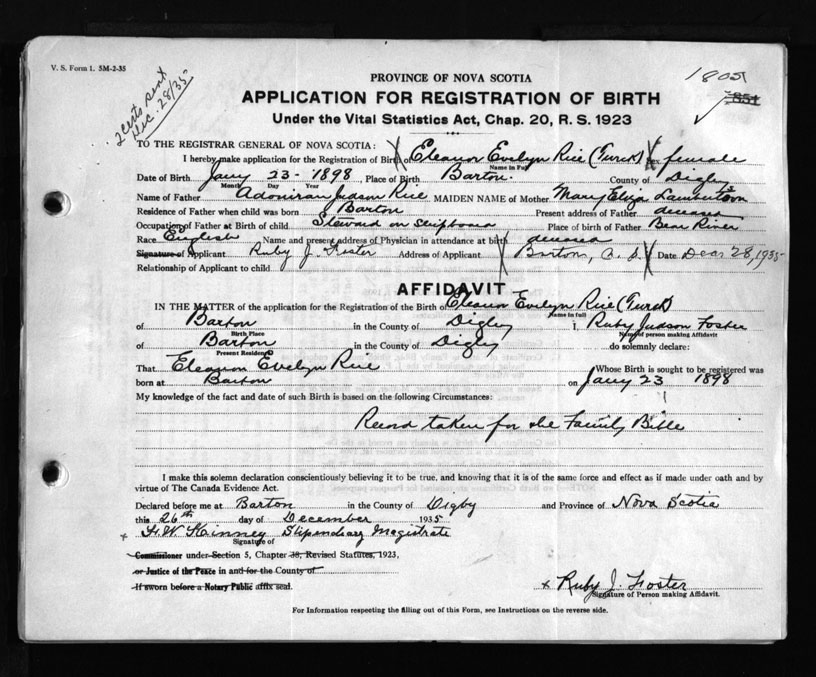 V. S. Form 1. 5M-2-35
2 certs sent
Dec. 28/35
1805
851
PROVINCE OF NOVA SCOTIA
APPLICATION FOR REGISTRATION OF BIRTH
Under the Vital Statistics Act, Chap. 20, R. S. 1923
TO THE REGISTRAR GENERAL OF NOVA SCOTIA:
I hereby make application for the Registration of Birth of Eleanor Evelyn Rice (Turck) sex female
Name in Full
Date of Birth Jany 23 - 1898, Place of Birth Barton. County of Digby
Month Day Year
Name of Father Adoniram Judson Rice MAIDEN NAME of Mother Mary Eliza
Residence of Father when child was born Barton Present address of Father deceased
Occupation of Father at Birth of child Steward on Place of birth of Father Bear River
Race English Name and present address of Physician in attendance at birth deceased
Signature of Applicant Ruby J. Foster Address of Applicant Barton, N. S. Date Decr 28, 1935
Relationship of Applicant to child
AFFIDAVIT
IN THE MATTER of the application for the Registration of the Birth of Eleanor Evelyn Rice (Turck)
Name in full
of Barton in the County of Digby ; Ruby Judson Foster
Birth Place Name of person making Affidavit
of Barton in the County of Digby do solemnly declare:
Present Residence
That Eleanor Evelyn Rice Whose Birth is sought to be registered was
born at Barton on Jany 23 1898
My knowledge of the fact and date of such Birth is based on the following Circumstances:
Record taken for the Family Bible
I make this solemn declaration conscientiously believing it to be true, and knowing that it is of the same force and effect as if made under oath and by
virtue of The Canada Evidence Act.
Declared before me at Barton in the County of Digby and Province of Nova Scotia
this 26th day of December 1935
x H. W. Kinney Stipendiary Magistrate
Signature of
Commissioner under Section 5, Chapter 38, Revised Statutes, 1923,
or Justice of the Peace in and for the County of
If sworn before a Notary Public affix seal.
x Ruby J. Foster
Signature of Person making Affidavit.
For Information respecting the filling out of this Form, see Instructions on the reverse side.